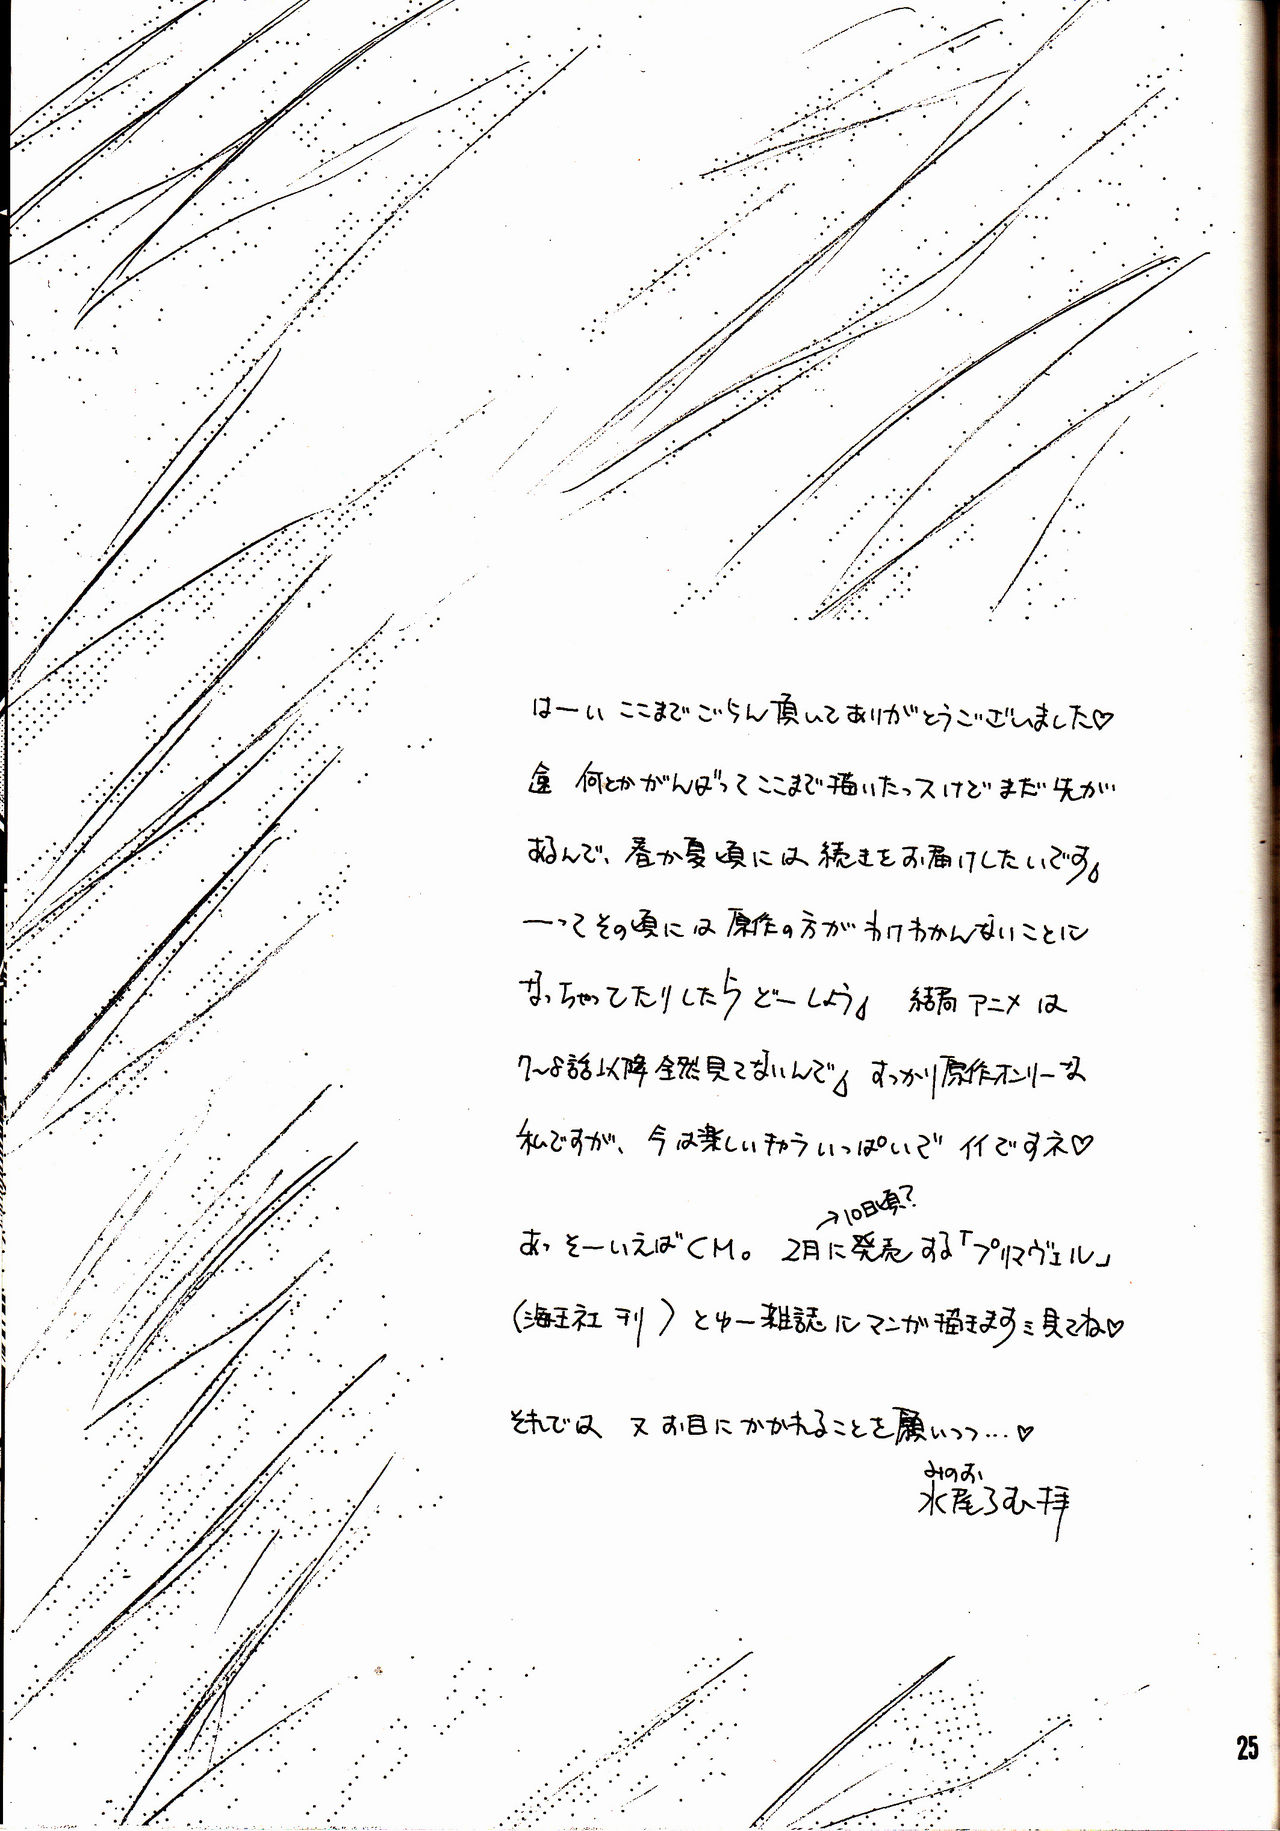 はーい ここまでごらん頂いてありがとうございました♡
何とかがんばってここまで描いたっスけどまだ先が
あるんで、春か夏頃には続きをお届けしたいです。
ーってその頃には原作の方がわけわかんないことに
なっちゃってたりしたらどーしよう。 結局アニメは
7〜8話以降全然見てないんで。 すっかり原作オンリーな
私ですが、今は楽しいキャラいっぱいでイイですネ♡
→10日頃?
あっそーいえばCM。 2月に発売する「プリマヴェル」
(海王社刊) とゆー雑誌にマンガ描きます 見てね♡
それでは 又お目にかかれることを願いつつ…♡
みのお
水尾ろむ拝
25